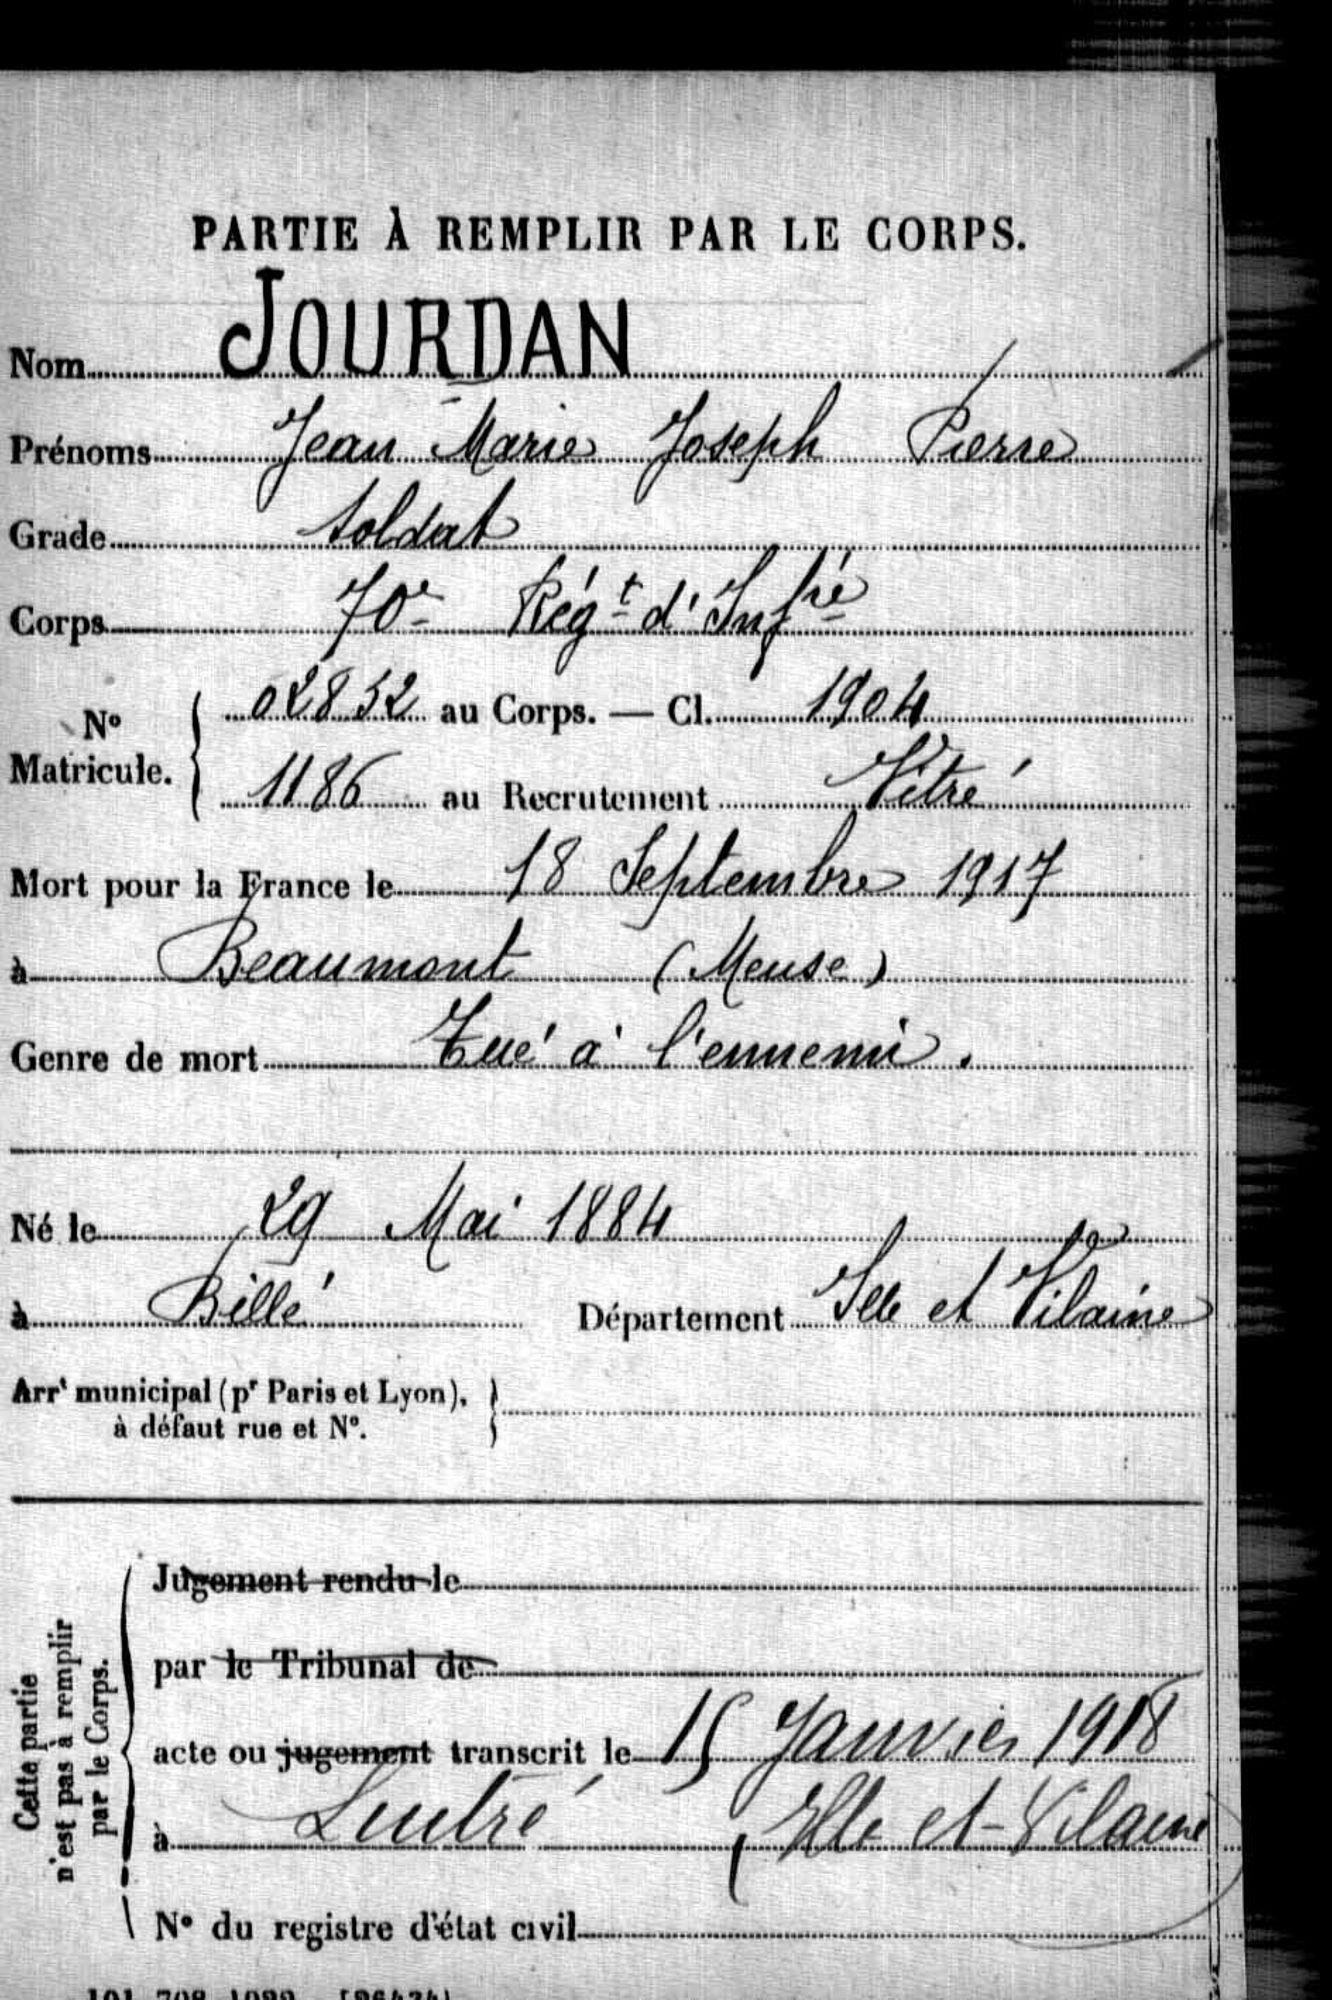 PARTIE À REMPLIR PAR LE CORPS.
Nom JOURDAN
Prénoms Jean Marie Joseph Pierre
Grade soldat
Corps 70e Régt d'Infrie
No Matricule. 02832 au Corps. — Cl. 1904
1186 au Recrutement Vitré
Mort pour la France le 18 Septembre 1917
à Beaumont (Meuse)
Genre de mort Tué à l'ennemi.
Né le 29 Mai 1884
à Billé Département Ille et Vilaine
Arrt municipal (pr Paris et Lyon),
à défaut rue et No.
Cette partie
n'est pas à remplir
par le Corps.
Jugement rendu le
par le Tribunal de
acte ou jugement transcrit le 15 Janvier 1918
à Luitré (Ille et-Vilaine
No du registre d'état civil
101-708-1922. [26434]